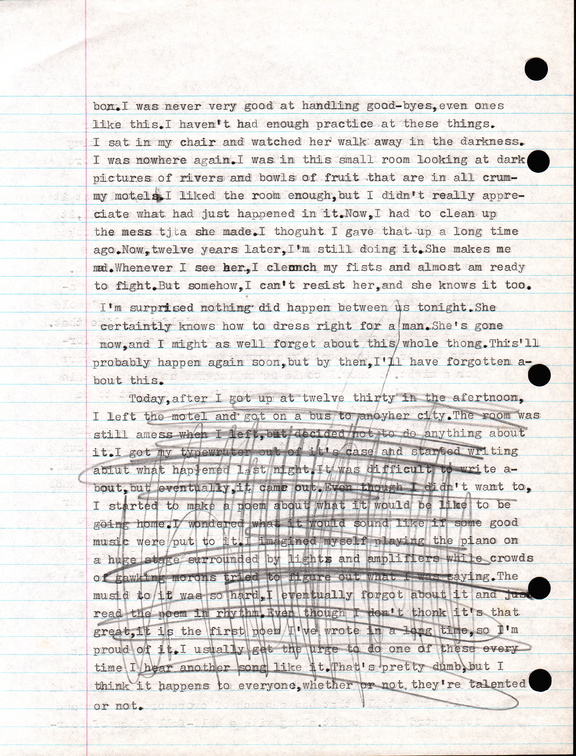 bon.I was never very good at handling good-byes,even ones
like this.I haven't had enough practice at these things.
I sat in my chair and watched her walk away in the darkness.
I was nowhere again.I was in this small room looking at dark
pictures of rivers and bowls of fruit that are in all crum-
my motels.I liked the room enough,but I didn't really appre-
ciate what had just happened in it.Now,I had to clean up
the mess tjta she made.I thoguht I gave that up a long time
ago.Now,twelve years later,I'm still doing it.She makes me
mad.Whenever I see her,I clennch my fists and almost am ready
to fight.But somehow,I can't resist her,and she knows it too.
I'm surprised nothing did happen between us tonight.She
certaintly knows how to dress right for a man.She's gone
now,and I might as well forget about this whole thong.This'll
probably happen again soon,but by then,I'll have forgotten a-
bout this.
Today,after I got up at twelve thirty in the afertnoon,
I left the motel and got on a bus to anoyher city.The room was
still amess when I left,but decided not to do anything about
it.I got my typewruter out of it's case and started writing
abiut what happened last night.It was difficult to write a-
bout,but eventually,it came out.Even though I didn't want to,
I started to make a poem about what it would be like to be
going home.I wondered what it would sound like if some good
music were put to it.I imagined myself playing the piano on
a huge stage surrounded by lights and amplifiers while crowds
of gawking morons tried to figure out what I was saying.The
musid to it was so hard,I eventually forgot about it and just
read the poem in rhythm.Even though I don't thonk it's that
great,it is the first poem I've wrote in a long time,so I'm
proud of it.I usually get the urge to do one of these every
time I hear another song like it.That's pretty dumb,but I
think it happens to everyone,whether or not they're talented
or not.